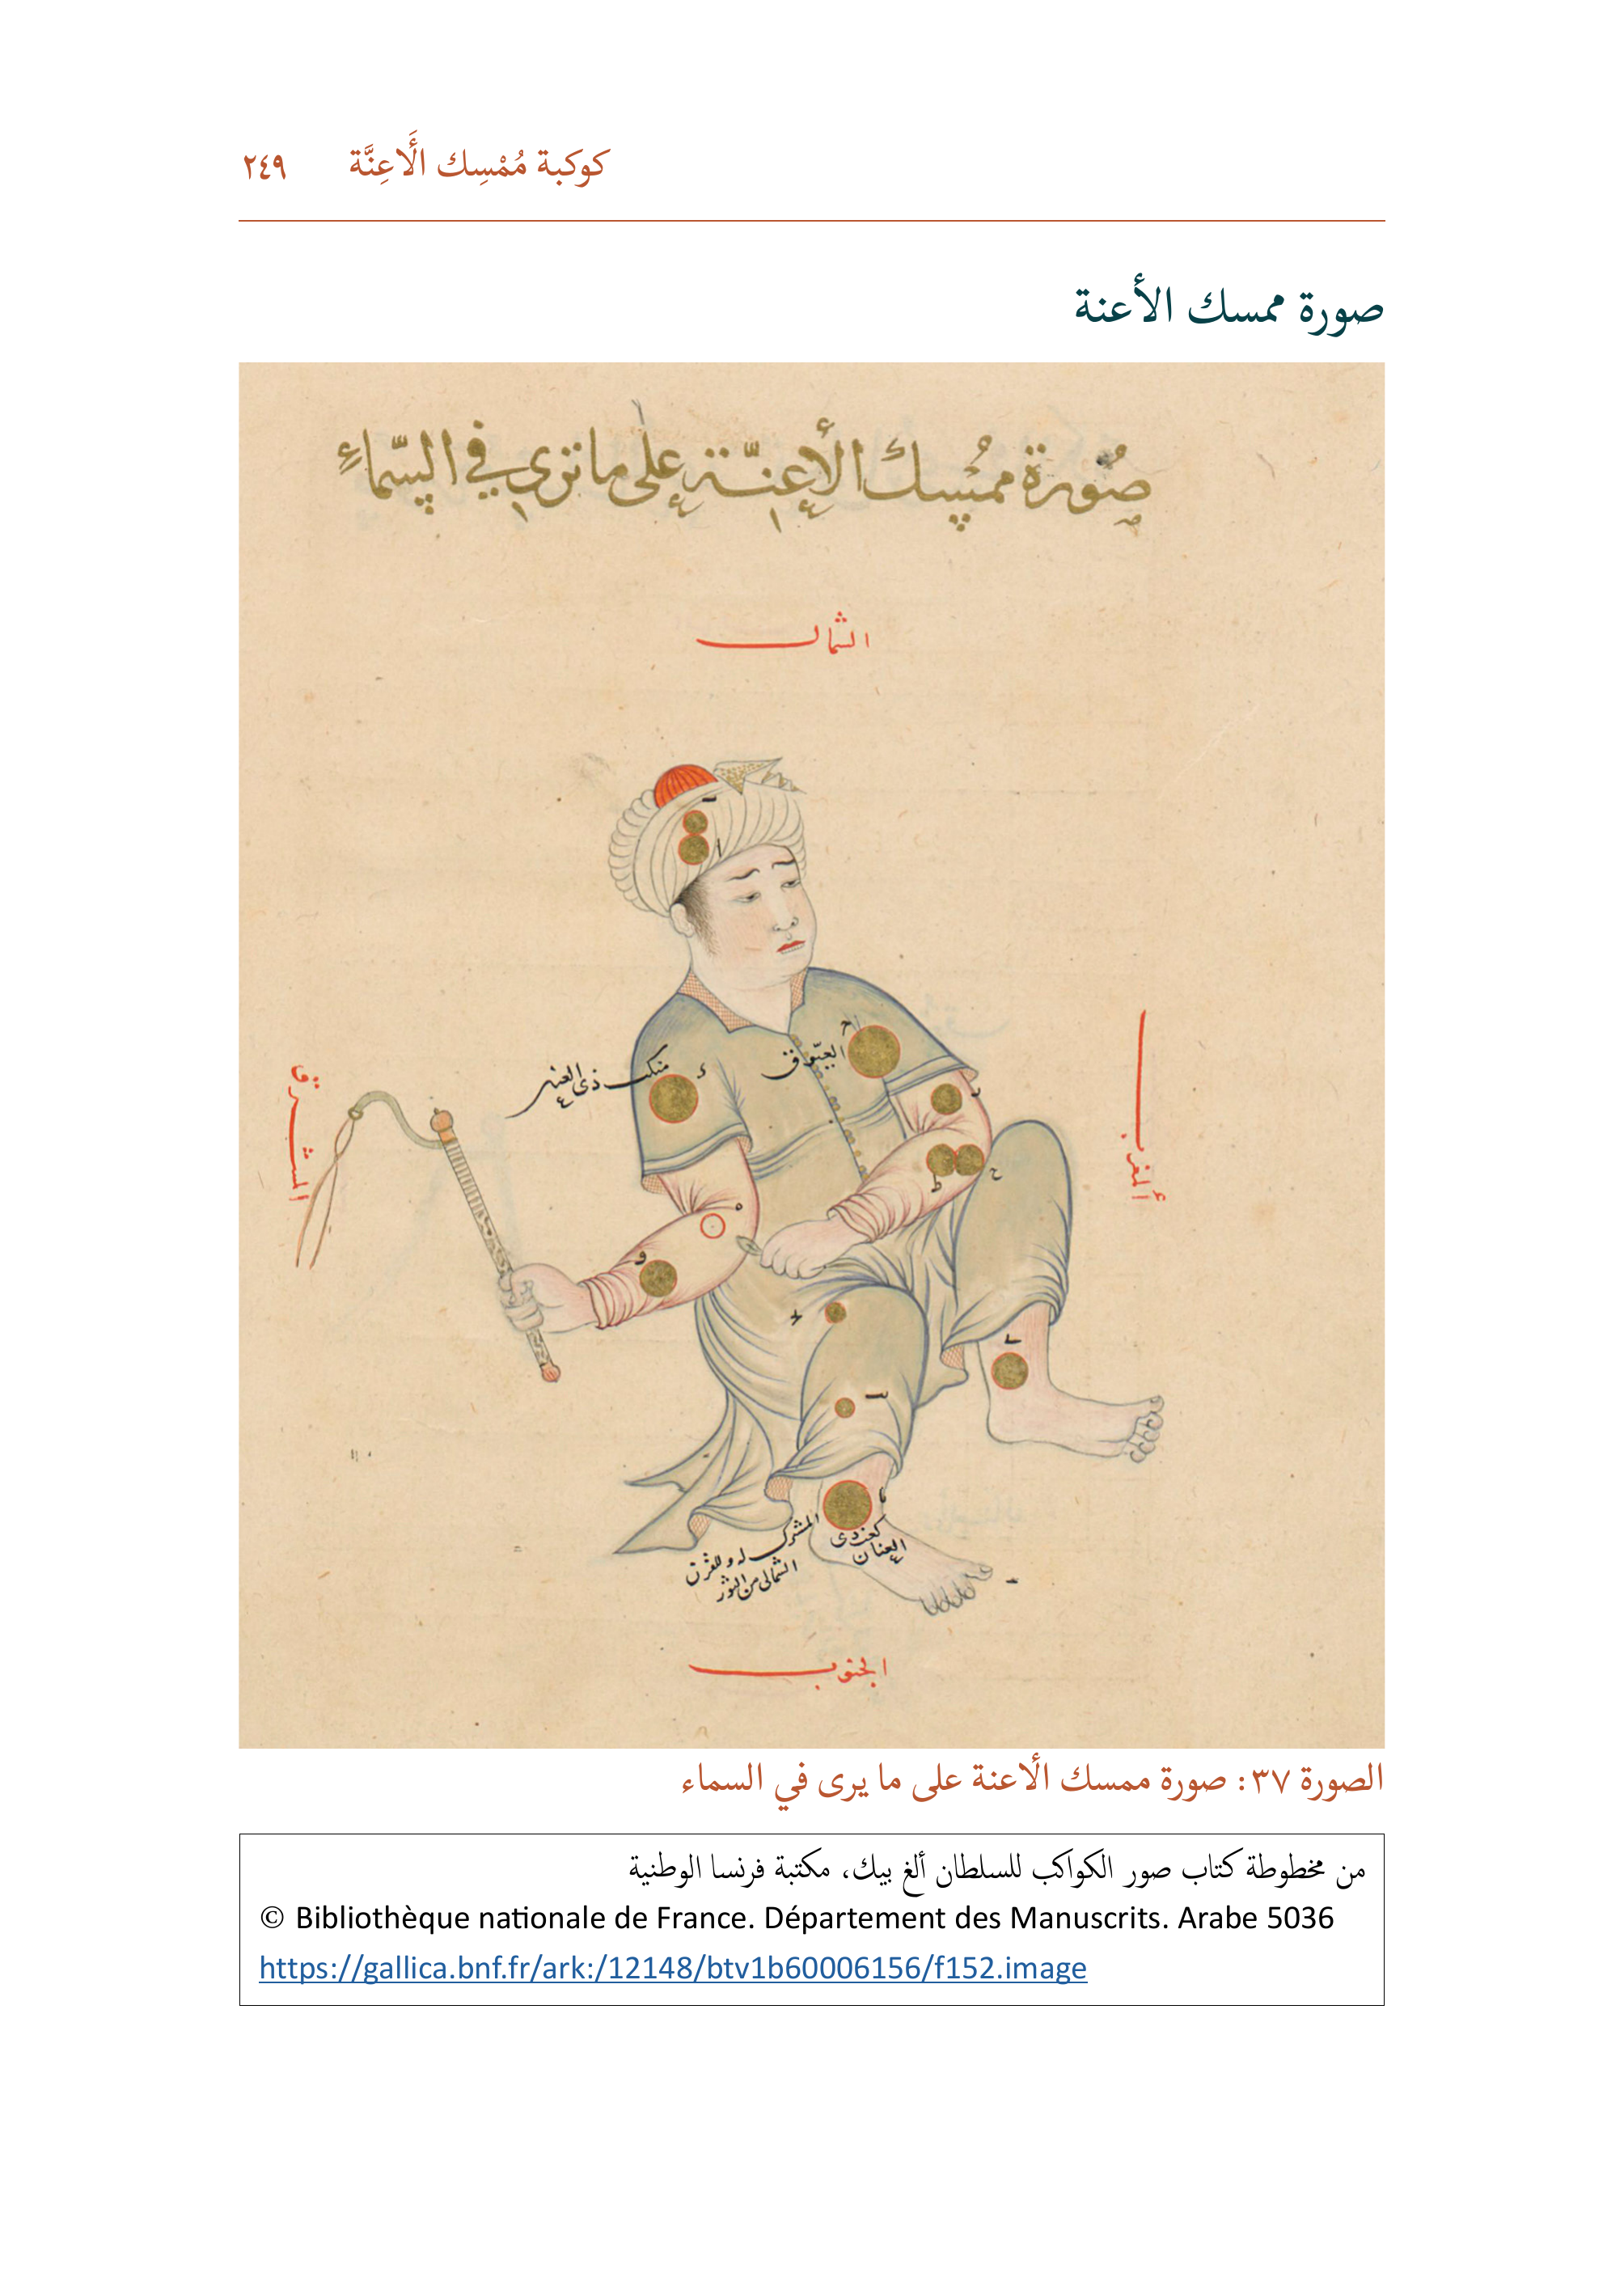 كوكبة مُمْسِك الَأعِنَّة ٢٤٩
صورة ممسك الأعنة
صُورة ممسك الأعنّة على ما ترى في السّماء
الشمال
العيّوق
منكب ذى العنر
المشرق
المغرب
كعب ذى
العنان
المشترك له وللقرن
الشمالى من الثور
الجنوب
الصورة ٣٧: صورة ممسك الَأعنة على ما يرى في السماء
من مخطوطة كتاب صور الكواكب للسلطان ألغ بيك، مكتبة فرنسا الوطنية
© Bibliothèque nationale de France. Département des Manuscrits. Arabe 5036
https://gallica.bnf.fr/ark:/12148/btv1b60006156/f152.image